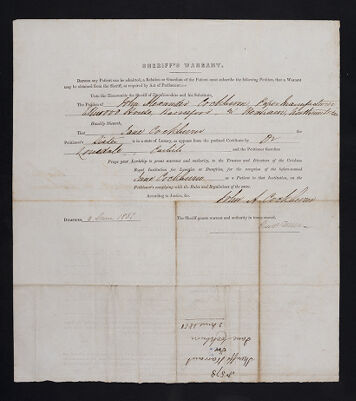 SHERIFF'S WARRANT.
Before any Patient can be admitted, a Relation or Guardian of the Patient must subscribe the following Petition, that a Warrant
may be obtained from the Sheriff, as required by Act of Parliament:—
Unto the Honourable the Sheriff of Dumfries-shire and his Substitute,
The Petition of John Alexander Cockburn, Paper
Humbly Sheweth,
That Jane Cockburn the
Petitioner's Sister is in a state of Lunacy, as appears from the prefixed Certificate by Dr
Lonsdale, Carlisle and the Petitioner therefore
Prays your Lordship to grant warrant and authority, to the Trustees and Directors of the Crichton
Royal Institution for Lunatics at Dumfries, for the reception of the before-named
Jane Cockburn as a Patient in that Institution, on the
Petitioner's complying with the Rules and Regulations of the same.
According to Justice, &c. John A. Cockburn
Dumfries, 3 June 1851 The Sheriff grants warrant and authority in terms craved.
No 578
Sheriff's Warrant
for
Jane Cockburn
3 June 1851